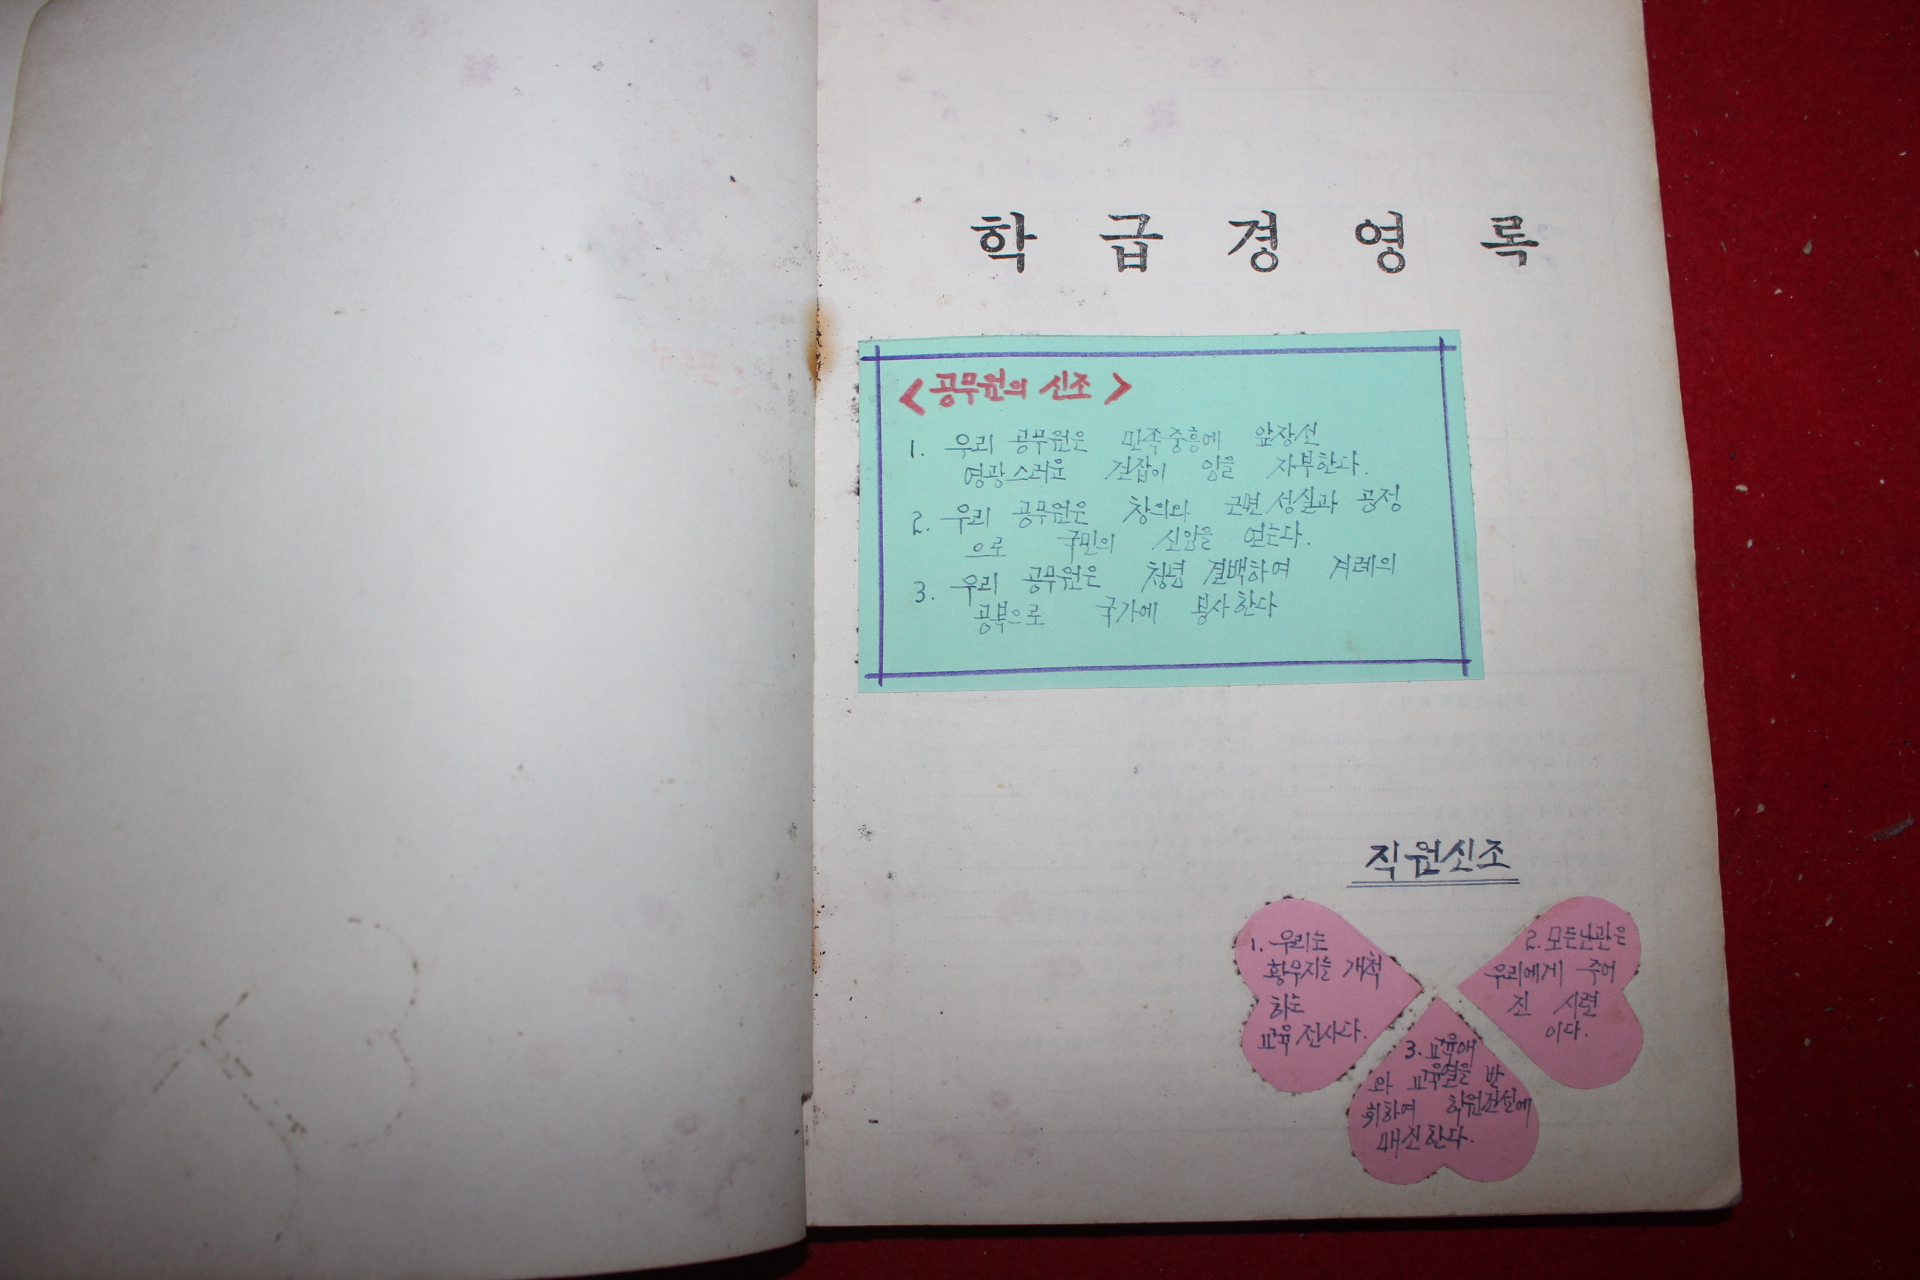 학급경영록
<공무원의 신조>
1. 우리 공무원은 민족중흥에 앞장선
영광스러운 견잡이 임을 자부한다.
2. 우리 공무원은 창의와 근면 성실과 공정
으로 국민의 신임을 얻는다.
3. 우리 공무원은 청념 결백하여 겨레의
공복으로 국가에 봉사한다
직원신조
1. 우리는
황무지를 개척
하는
교육전사다.
2. 모든난관은
우리에게 주어
진 시련
이다.
3. 교육애
와 교육열을 발
휘하여 학원건설에
매진한다.